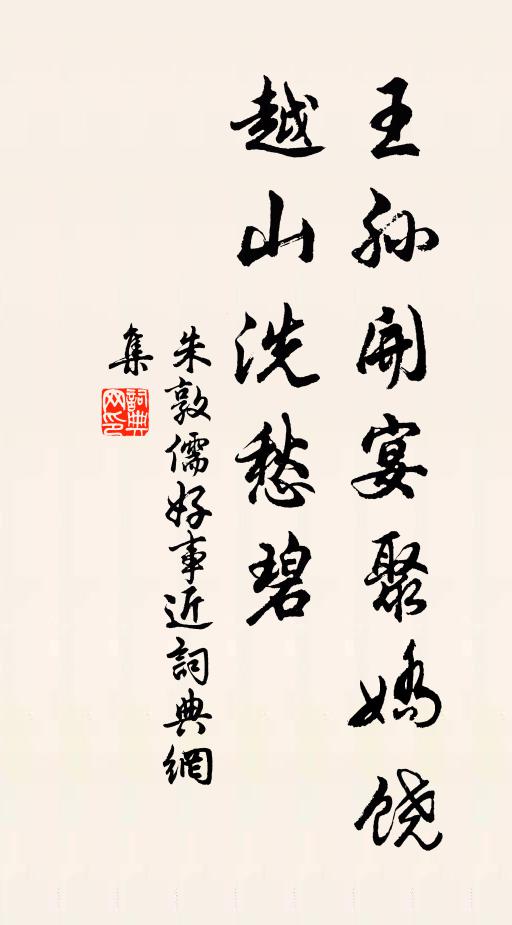 王孙開宴聚嬌饶
越山洗愁碧
朱敦儒好事近詞典網
集
詞典
网印